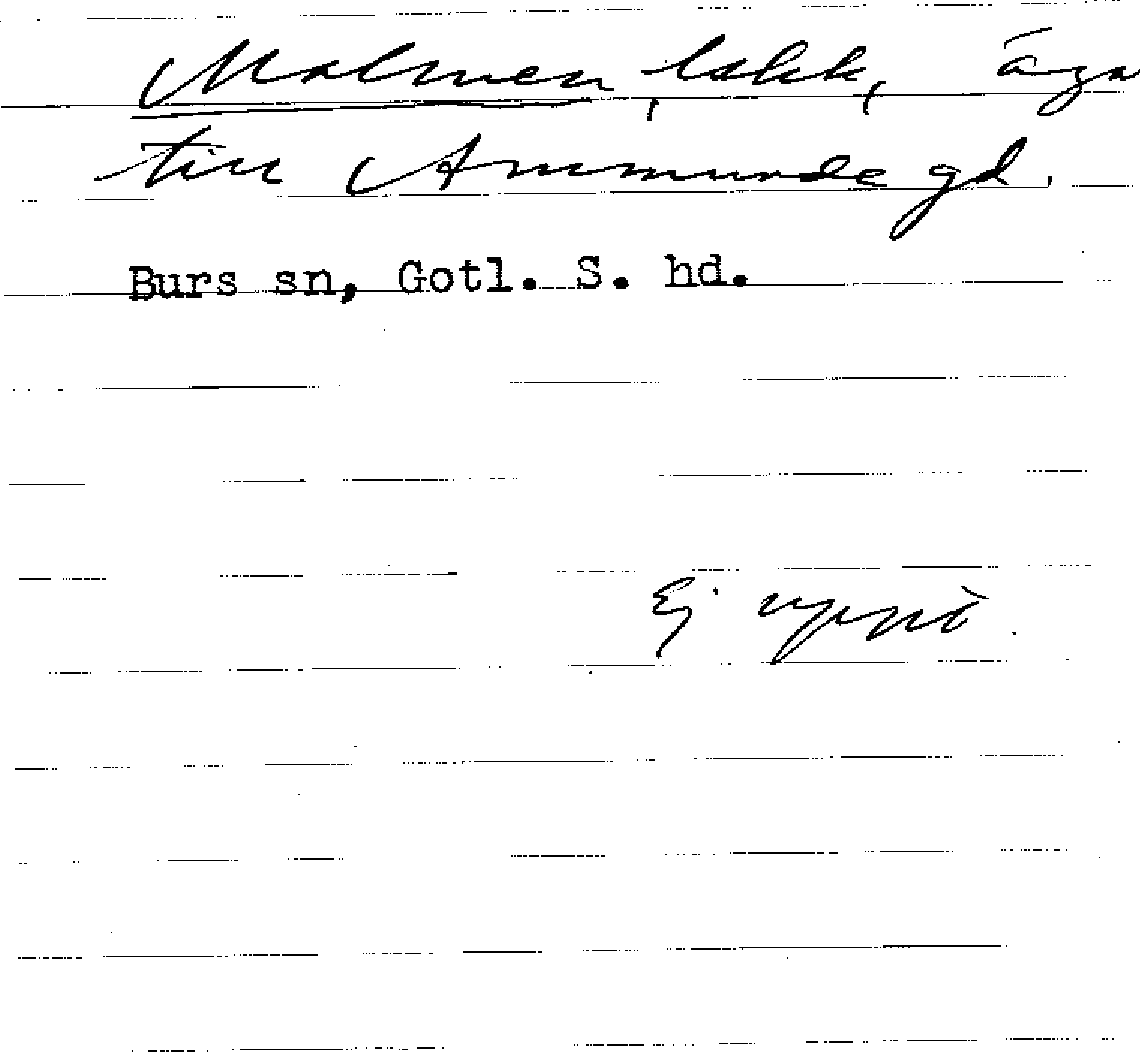 Malmen, lokk, äga
till Ammunde gd.
Burs sn, Gotl. S. hd.
Ej uppt.